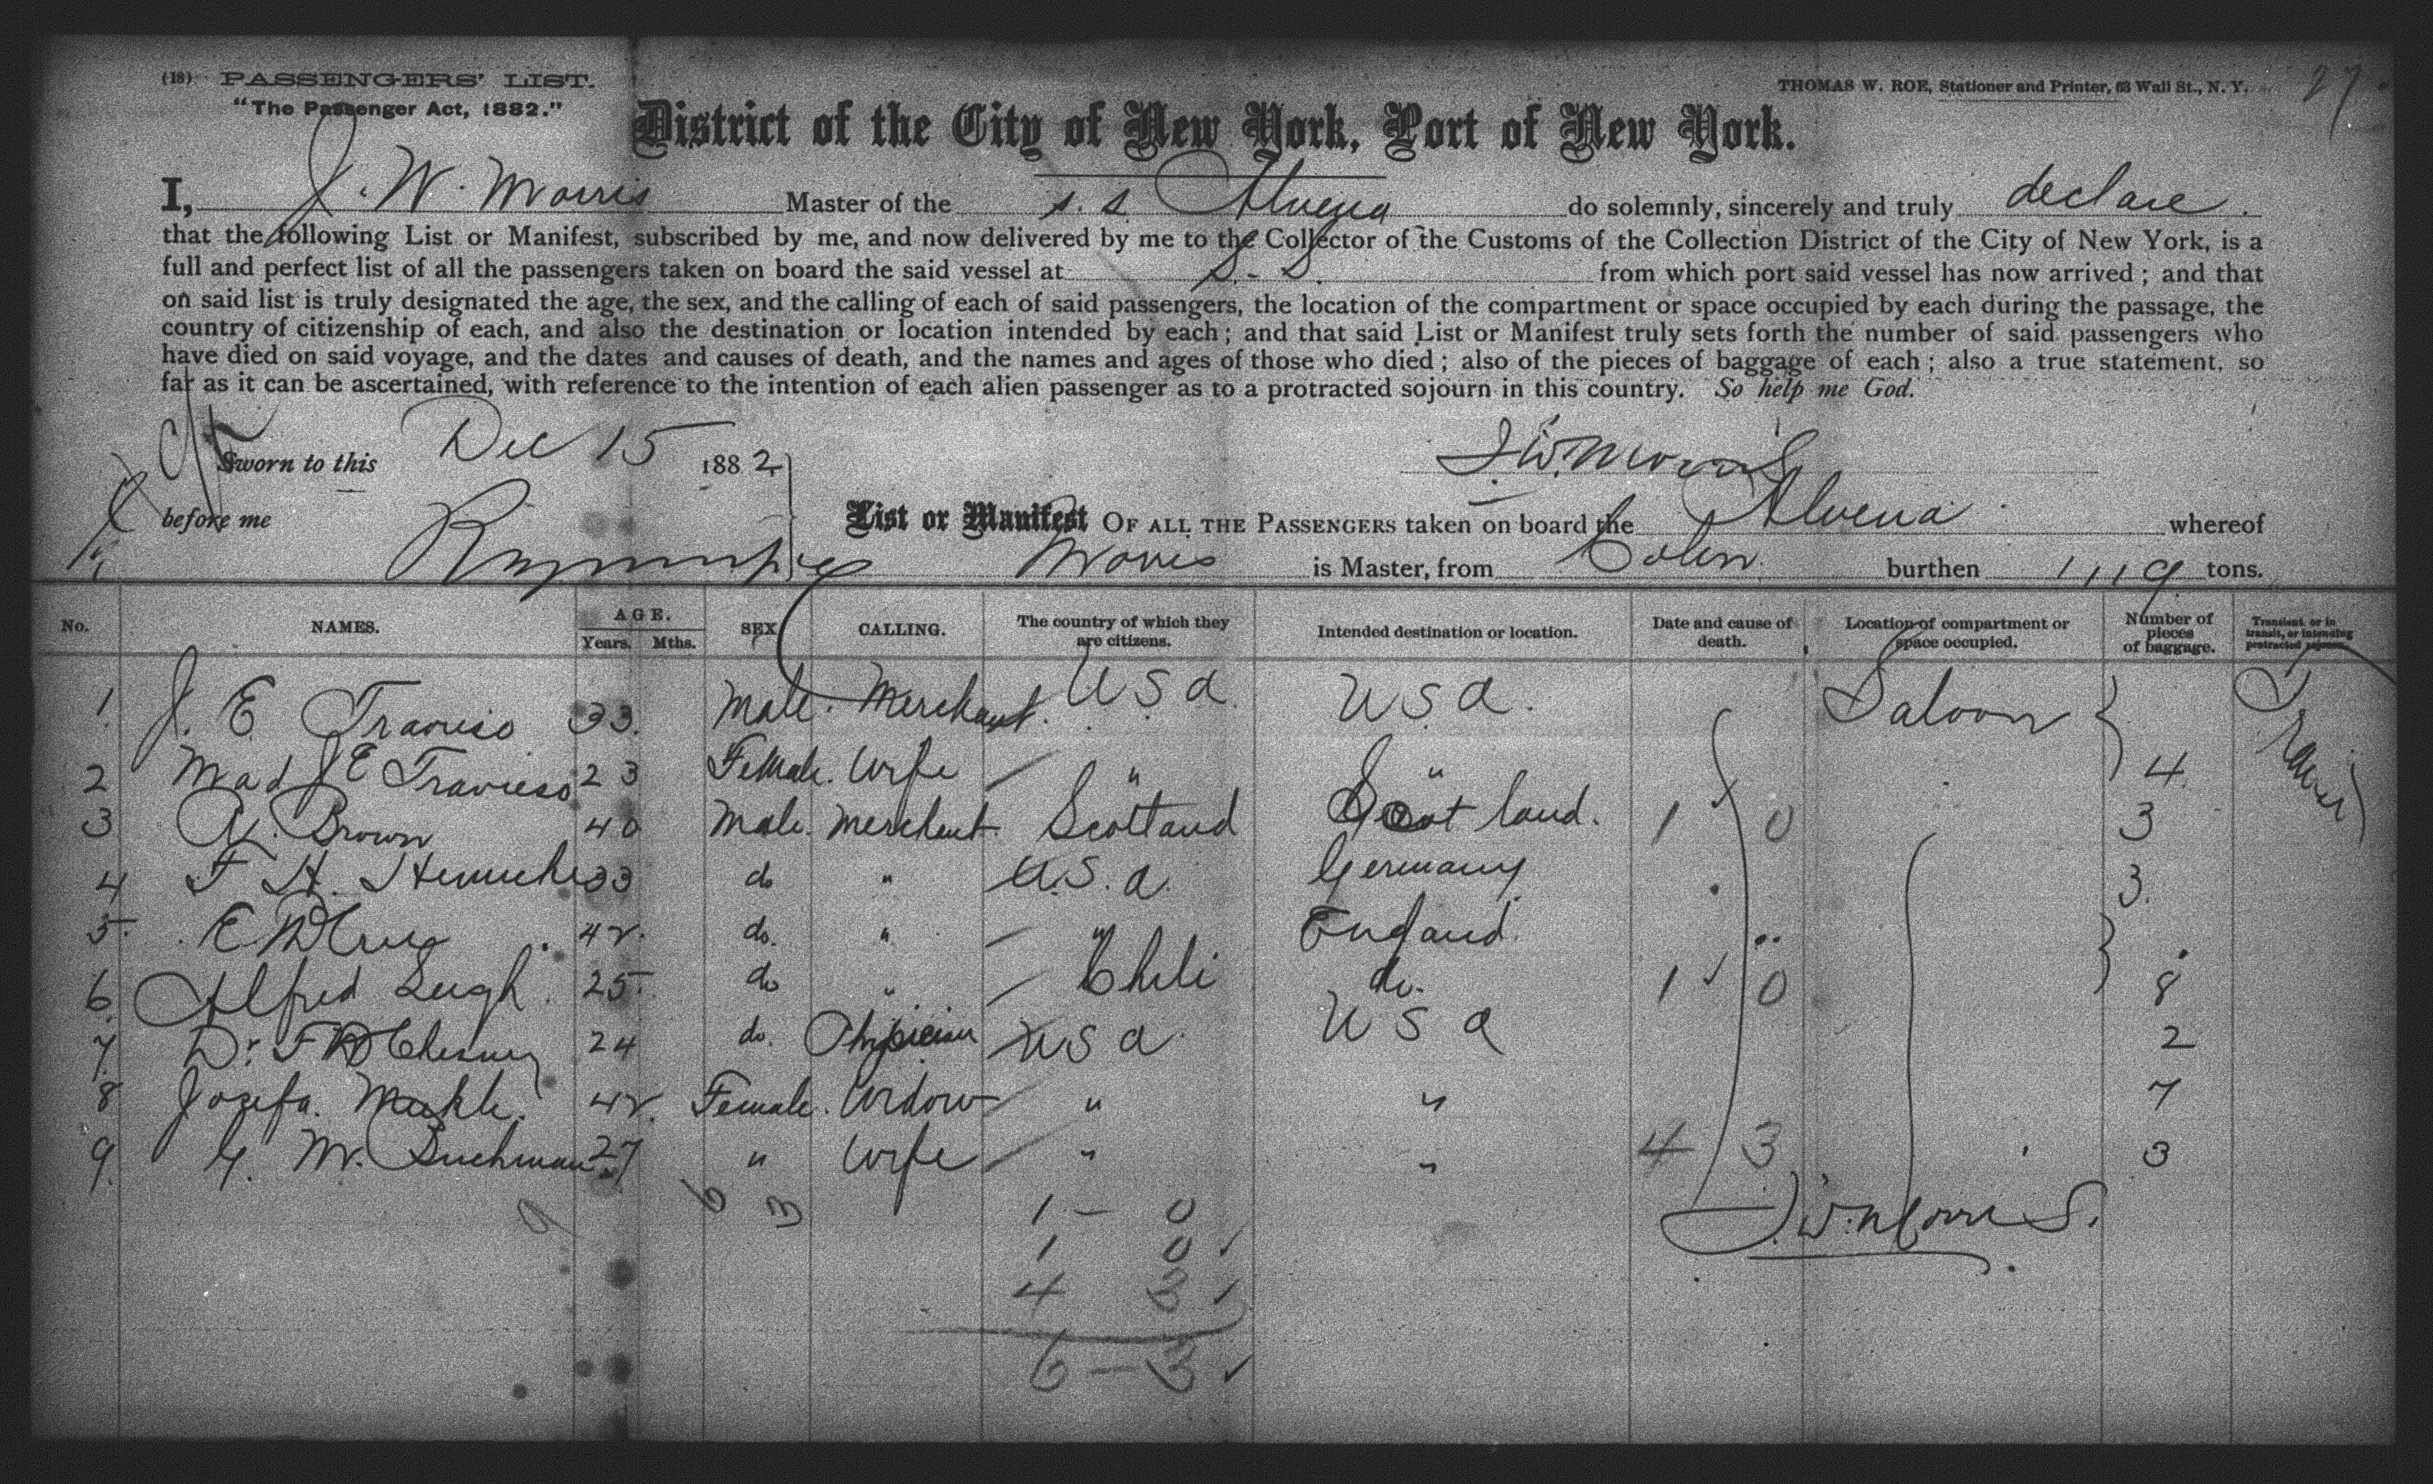 (18) PASSENGERS' LIST.
"The Passenger Act, 1882."
THOMAS W. ROE, Stationer and Printer, 63 Wall St., N. Y.
27
District of the City of New York, Port of New York.
I, J. W. Morris Master of the s. s. Alvena do solemnly, sincerely and truly declare.
that the following List or Manifest, subscribed by me, and now delivered by me to the Collector of the Customs of the Collection District of the City of New York, is a
full and perfect list of all the passengers taken on board the said vessel at S. S. from which port said vessel has now arrived; and that
on said list is truly designated the age, the sex, and the calling of each of said passengers, the location of the compartment or space occupied by each during the passage, the
country of citizenship of each, and also the destination or location intended by each; and that said List or Manifest truly sets forth the number of said passengers who
have died on said voyage, and the dates and causes of death, and the names and ages of those who died; also of the pieces of baggage of each; also a true statement, so
far as it can be ascertained, with reference to the intention of each alien passenger as to a protracted sojourn in this country. So help me God.
Sworn to this Dec 15 1882
J. W. Morris
before me
List or Manifest OF ALL THE PASSENGERS taken on board the Alvena whereof
Morris is Master, from Colon burthen 1119 tons.
No. NAMES. AGE. Years. Mths. SEX CALLING. The country of which they are citizens. Intended destination or location. Date and cause of death. Location of compartment or space occupied. Number of pieces of baggage. Transient, or in transit, or intending protracted sojourn.
1. J. E Travieso 33. Male. Merchant. U S a. U S a. Saloon
2 Mad J E Travieso 23 Female. Wife " " 4
3 A. Brown 40 Male. Merchant. Scotland Scot land. 1 0 3
4 F H. 33 do " U. S. a. Germany 3.
5. E 42. do. " " England.
6. Alfred Leigh. 25. do " Chili do. 1 0 8
7. Dr. F Chesney 24 do. Physician U S a. U S a 2
8 Josefa. 42. Female. Widow " " 7
9. G. W. Buchman 27 " Wife " " 4 3 3
9 6 3 1 - 0
J. W. Morris.
1 0
4 3
6 - 3